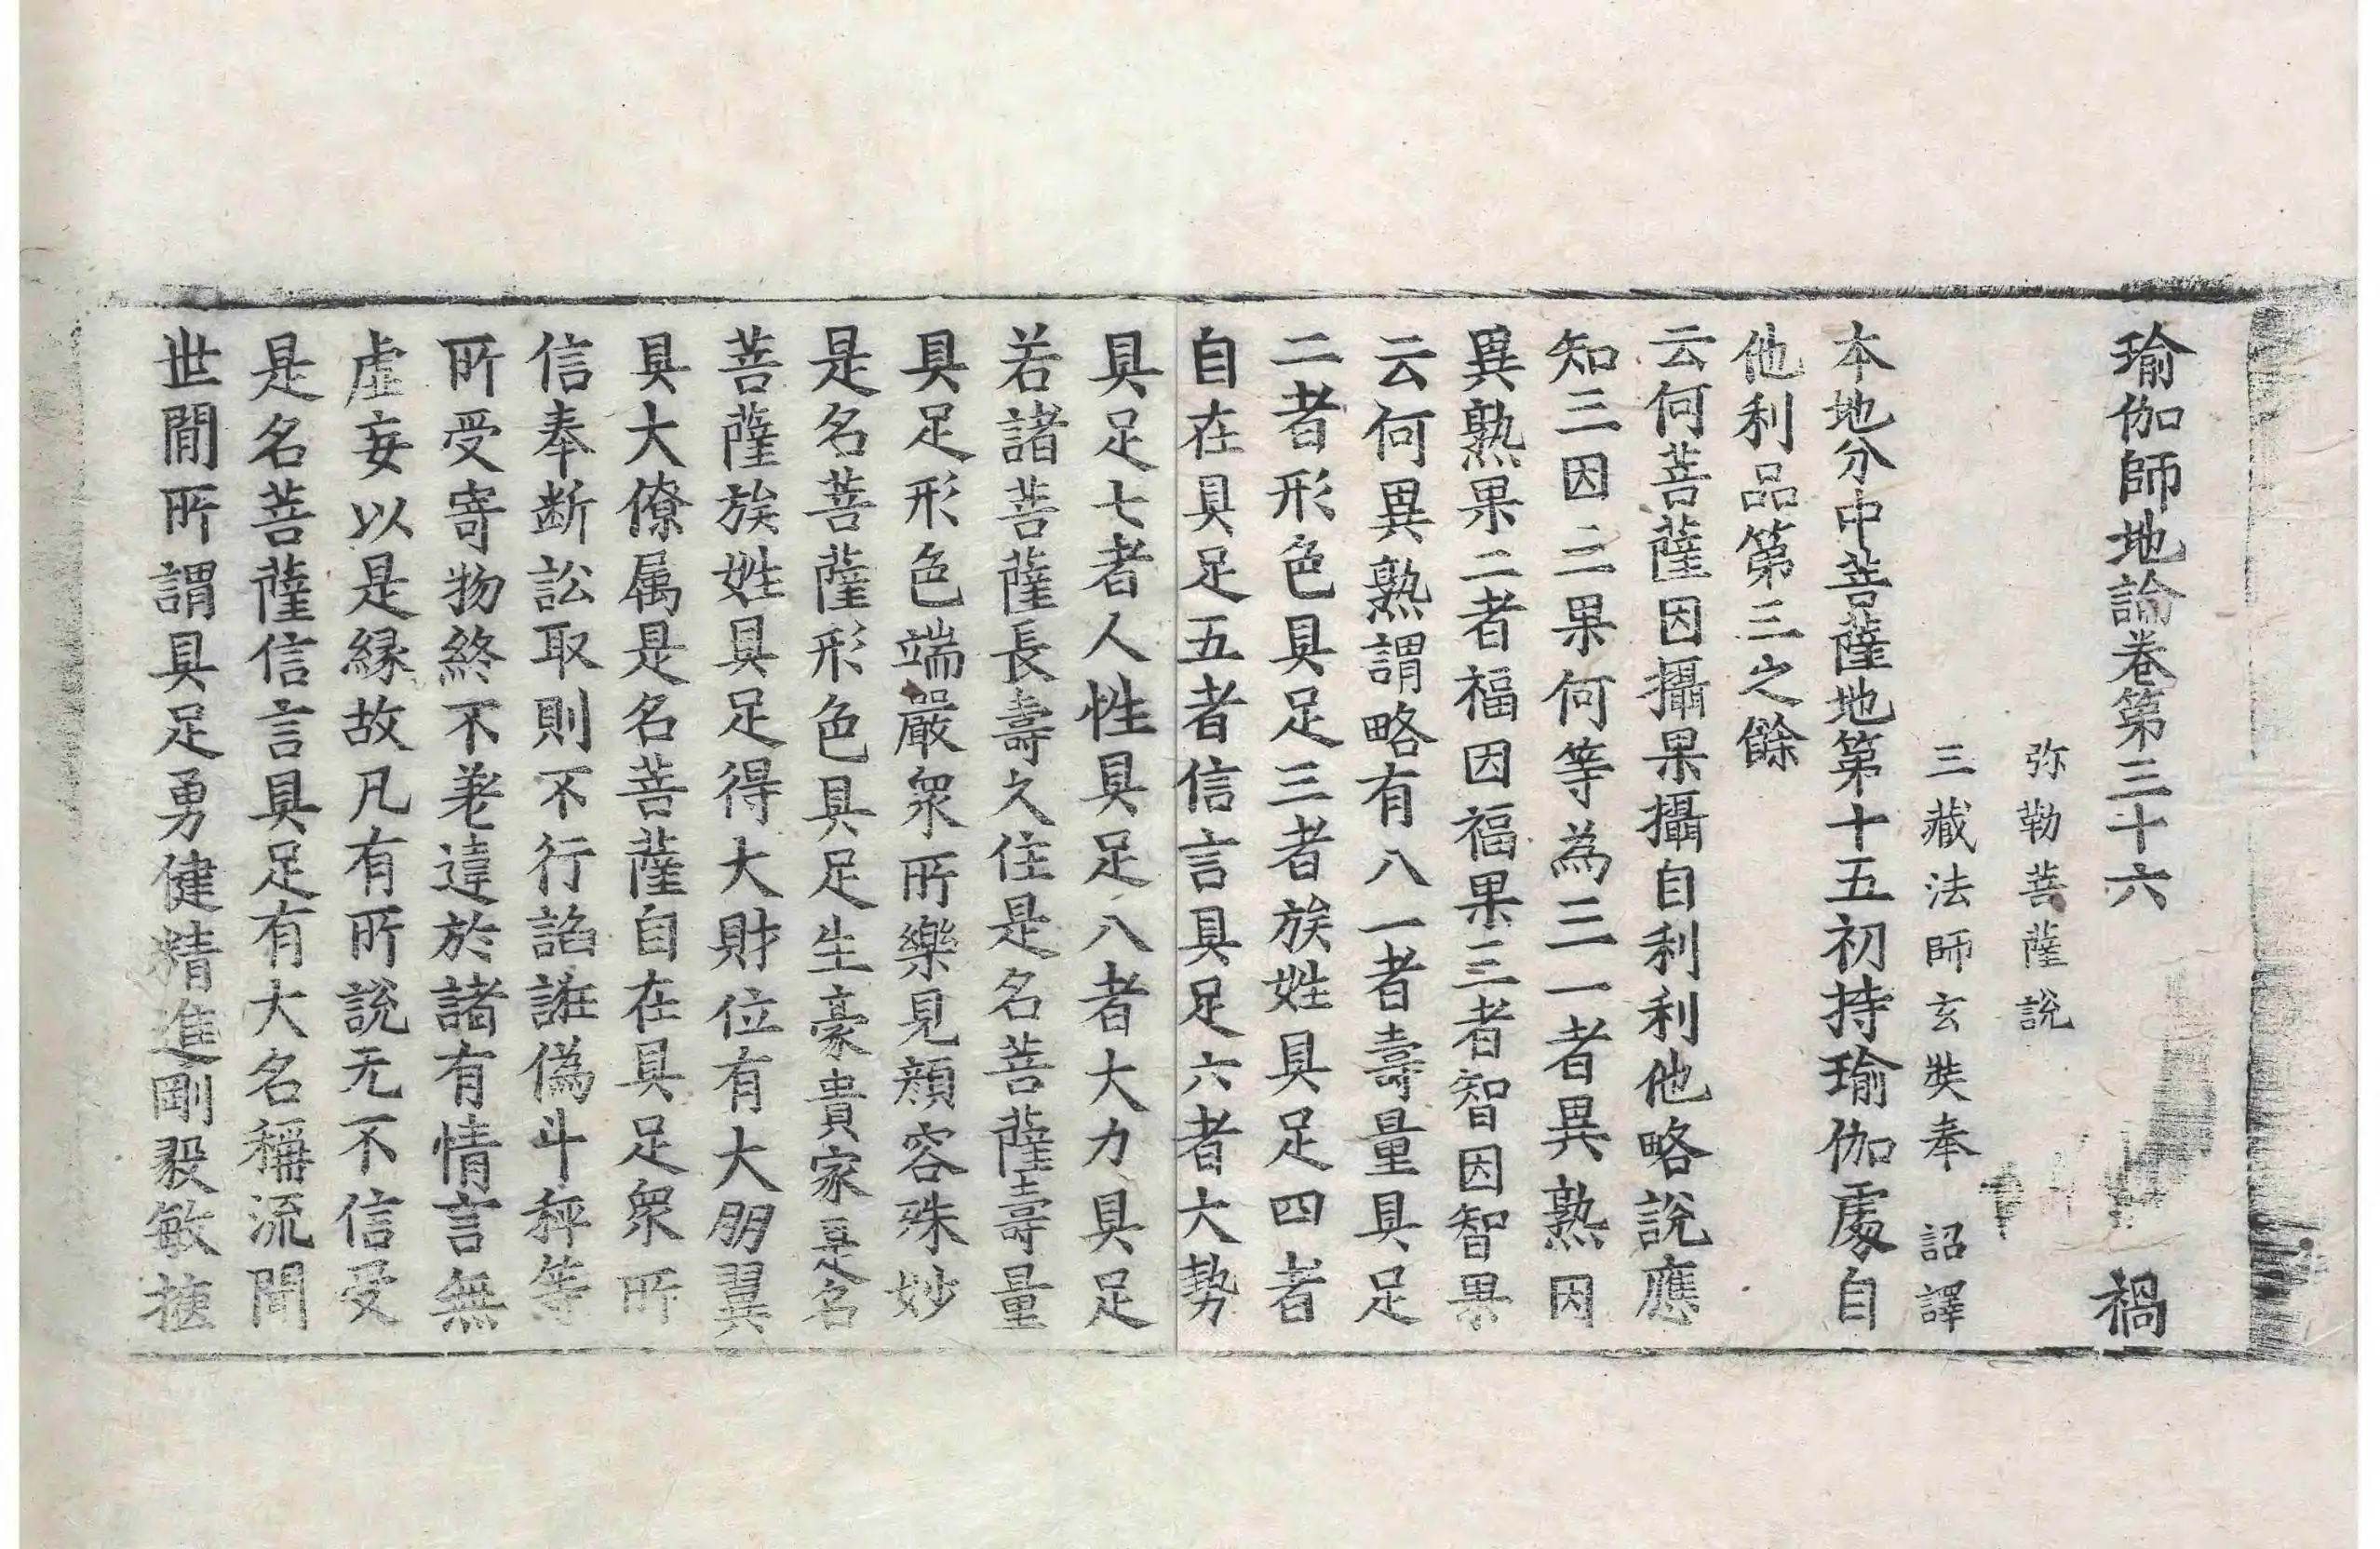 瑜伽師地論卷第三十六 禍
弥勒菩薩說
三藏法師玄奘奉 詔譯
本地分中菩薩地第十五初持瑜伽處自
他利品第三之餘
云何菩薩因攝果攝自利利他略說應
知三因三果何等為三一者異熟因
異熟果二者福因福果三者智因智果
云何異熟謂略有八一者壽量具足
二者形色具足三者族姓具足四者
自在具足五者信言具足六者大勢
具足七者人性具足八者大力具足
若諸菩薩長壽久住是名菩薩壽量
具足形色端嚴衆所樂見顔容殊妙
是名菩薩形色具足生豪貴家是名
菩薩族姓具足得大財位有大朋翼
具大僚属是名菩薩自在具足衆所
信奉断訟取則不行諂誑偽斗秤等
所受寄物終不差違於諸有情言無
虛妄以是縁故凡有所說无不信受
是名菩薩信言具足有大名稱流聞
世閒所謂具足勇健精進剛毅敏捷